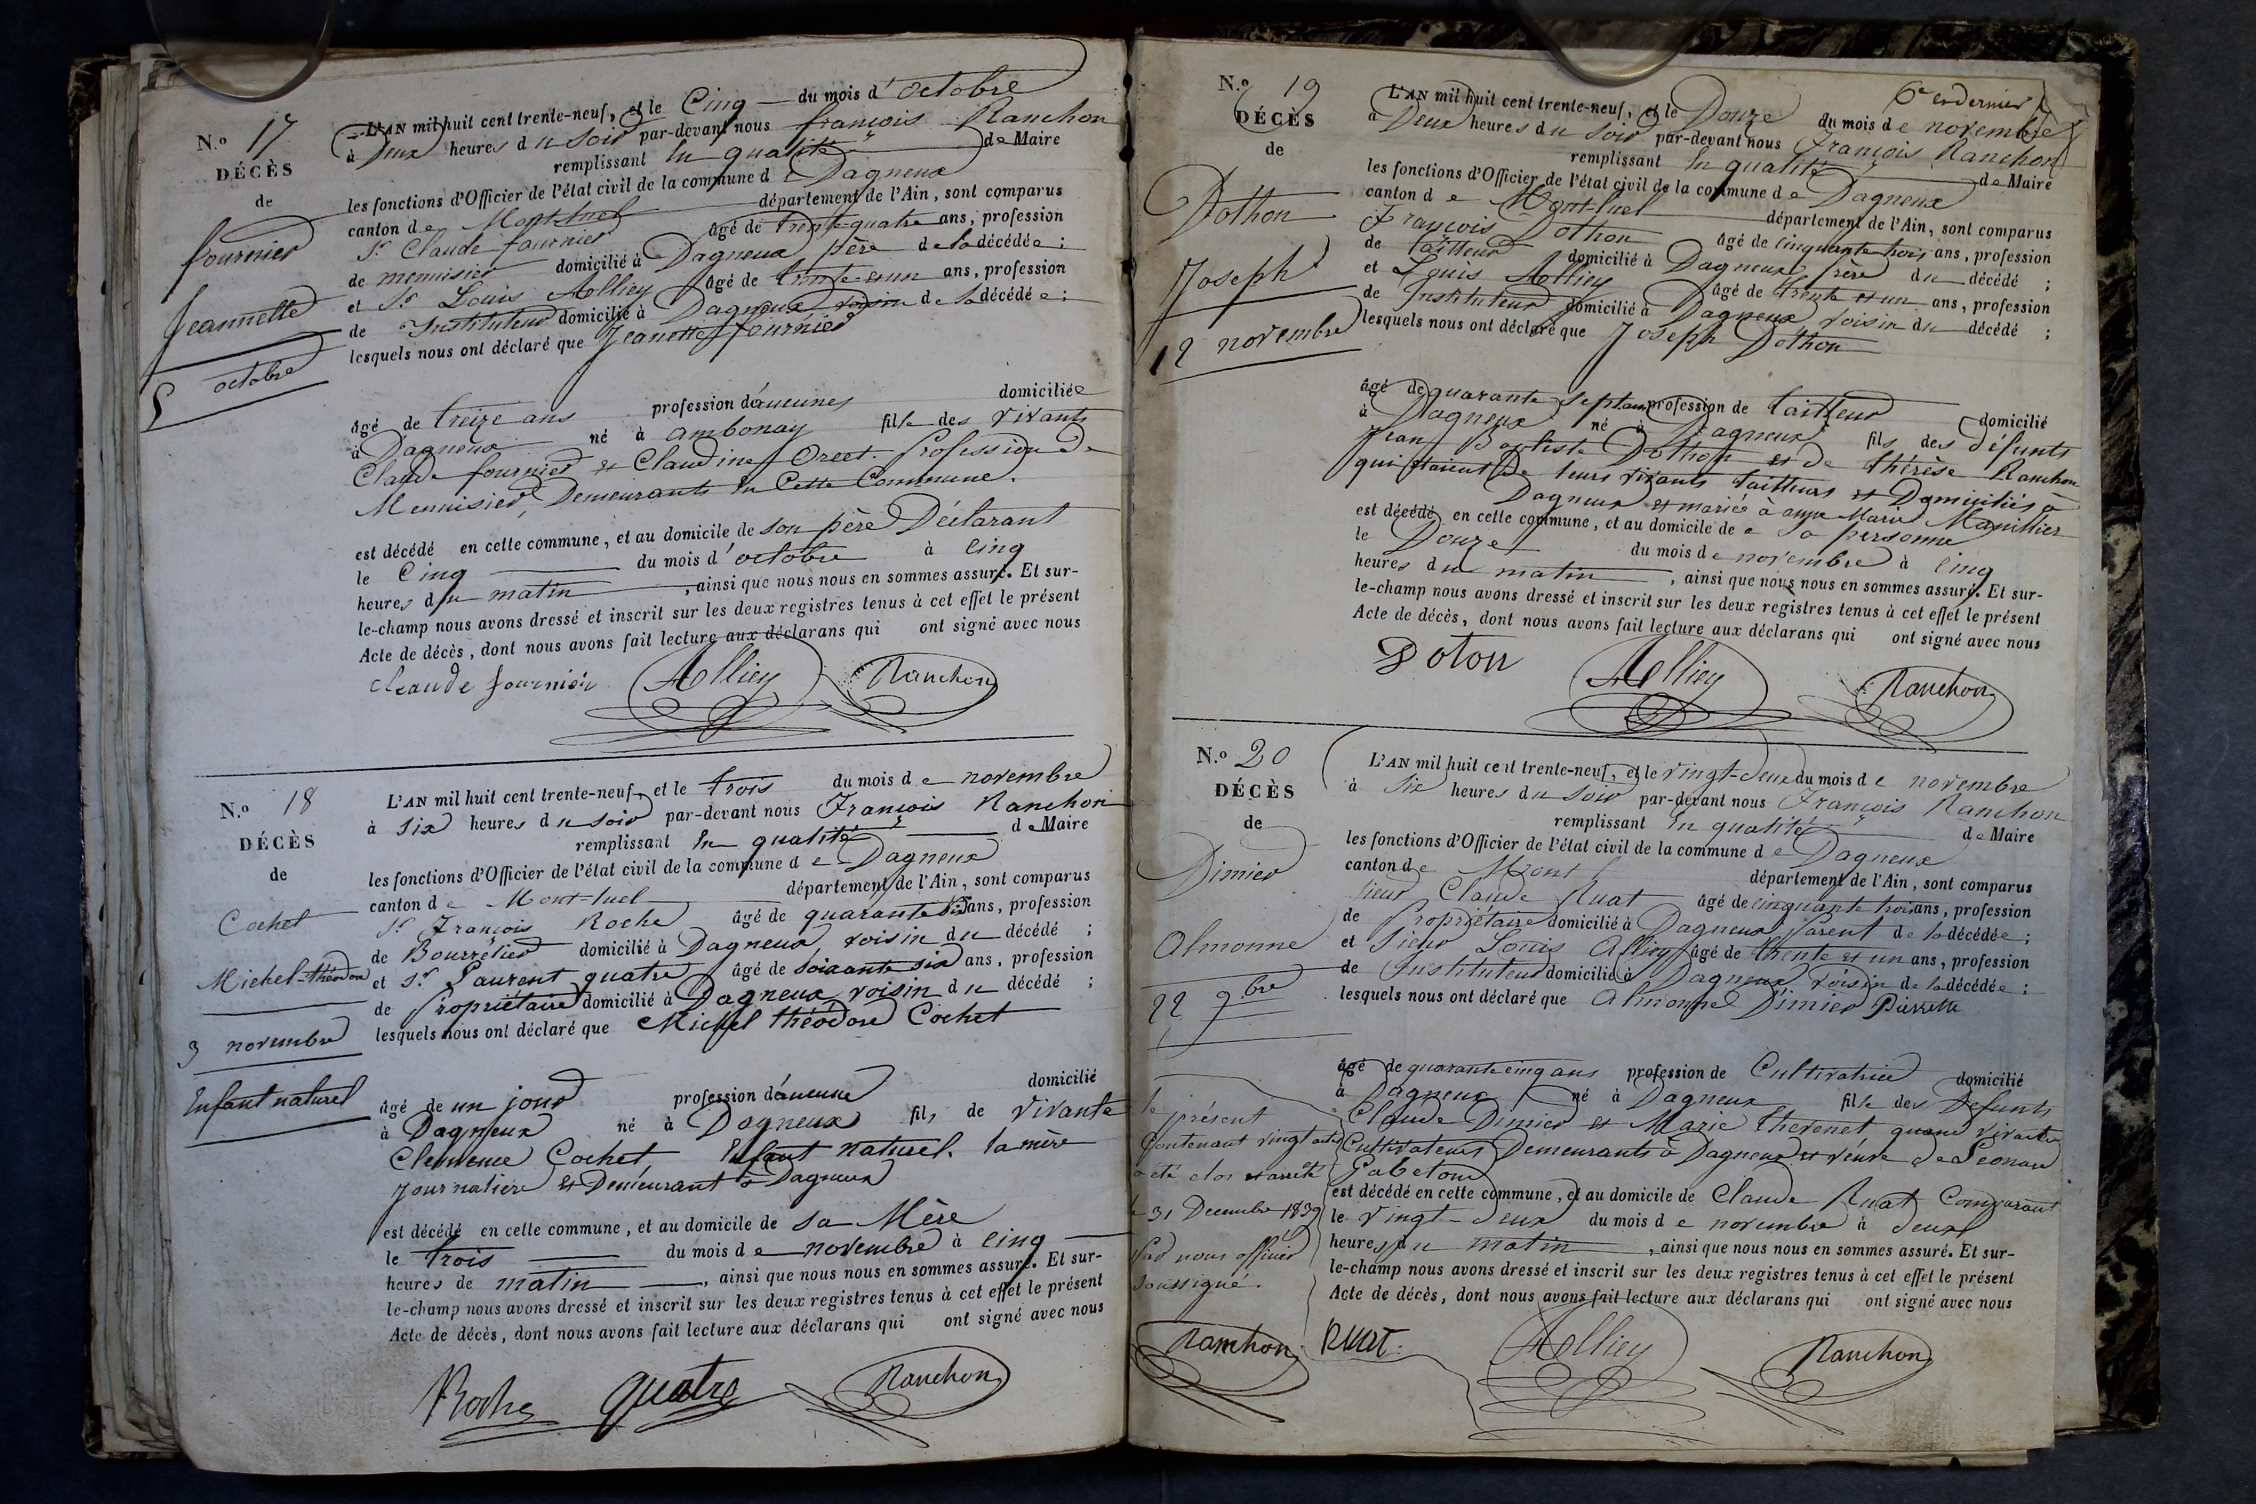 N.o 17
DÉCÈS
de
fournier
Jeannette
5 octobre
L'AN mil huit cent trente-neuf, et le Cinq du mois d'octobre
à Deux heures du soir par-devant nous françois Ranchon
remplissant en qualité de Maire
les fonctions d'Officier de l'état civil de la commune de Dagneux
canton de Mont-luel département de l'Ain, sont comparus
Sr Claude fournier âgé de trente quatre ans, profession
de menuisier domicilié à Dagneux père de la décédée ;
et Sr Louis Alliey âgé de trente-et un ans, profession
de Instituteur domicilié à Dagneux voisin de la décédée ;
lesquels nous ont déclaré que Jeanette fournier
âgé de treize ans profession d'aucunes domiciliée
à Dagneux né à ambonay fille des vivants
Claude fournier et Claudine Orcet. Profession de
Menuisier, Demeurants en Cette Commune.
est décédé en cette commune, et au domicile de son père Déclarant
le Cinq du mois d'octobre à cinq
heures du matin, ainsi que nous nous en sommes assuré. Et sur-
le-champ nous avons dressé et inscrit sur les deux registres tenus à cet effet le présent
Acte de décès, dont nous avons fait lecture aux déclarans qui ont signé avec nous
Claude fournier Alliey Ranchon
N.o 18
DÉCÈS
de
Cochet
Michel-théodore
3 novembre
Enfant naturel
L'AN mil huit cent trente-neuf, et le trois du mois de novembre
à six heures du soir par-devant nous François Ranchon
remplissant en qualité de Maire
les fonctions d'Officier de l'état civil de la commune de Dagneux
canton de Mont-luel département de l'Ain, sont comparus
Sr François Roche âgé de quarante six ans, profession
de Bourrelier domicilié à Dagneux voisin du décédé ;
et Sr Laurent quatre âgé de soixante six ans, profession
de Propriétaire domicilié à Dagneux voisin du décédé ;
lesquels nous ont déclaré que Michel théodore Cochet
âgé de un jour profession d'aucune domicilié
à Dagneux né à Dagneux fils de vivante
Clemence Cochet Enfant naturel. la mère
Journaliere et Demeurant à Dagneux
est décédé en cette commune, et au domicile de sa Mère
le trois du mois de novembre à cinq
heures de matin, ainsi que nous nous en sommes assuré. Et sur-
le-champ nous avons dressé et inscrit sur les deux registres tenus à cet effet le présent
Acte de décès, dont nous avons fait lecture aux déclarans qui ont signé avec nous
Roche quatre Ranchon
6e et dernier
N.o 19
DÉCÈS
de
Dothon
Joseph
12 novembre
L'AN mil huit cent trente-neuf, et le Douze du mois de novembre
à Deux heures du soir par-devant nous François Ranchon
remplissant en qualité de Maire
les fonctions d'Officier de l'état civil de la commune de Dagneux
canton de Mont-luel département de l'Ain, sont comparus
François Dothon âgé de cinquante trois ans, profession
de tailleur domicilié à Dagneux frère du décédé ;
et Louis Alliey âgé de trente et un ans, profession
de Instituteur domicilié à Dagneux voisin du décédé ;
lesquels nous ont déclaré que Joseph Dothon
âgé de quarante sept ans profession de tailleur domicilié
à Dagneux né à Dagneux fils des défunts
Jean Baptiste Dothon et de thérèse Ranchon
qui étaient De leurs vivants tailleurs et Domiciliés à
Dagneux et marié à anne Marie Manillier
est décédé en cette commune, et au domicile de sa personne
le Douze du mois de novembre à cinq
heures du matin, ainsi que nous nous en sommes assuré. Et sur-
le-champ nous avons dressé et inscrit sur les deux registres tenus à cet effet le présent
Acte de décès, dont nous avons fait lecture aux déclarans qui ont signé avec nous
Doton Alliey Ranchon
N.o 20
DÉCÈS
de
Dimier
Almonne
22 9bre
L'AN mil huit cent trente-neuf, et le vingt-deux du mois de novembre
à six heures du soir par-devant nous François Ranchon
remplissant en qualité de Maire
les fonctions d'Officier de l'état civil de la commune de Dagneux
canton de Mont département de l'Ain, sont comparus
sieur Claude Ruat âgé de cinquante trois ans, profession
de Propriétaire domicilié à Dagneux parent de la décédée ;
et sieur Louis Alliey âgé de trente et un ans, profession
de Instituteur domicilié à Dagneux voisin de la décédée ;
lesquels nous ont déclaré que almonne Dimier Pierrette
âgé de quarante cinq ans profession de Cultivatrice domicilié
à Dagneux né à Dagneux fille des Défunts
Claude Dimier et Marie thevenet quand vivants
Cultivateurs Demeurants à Dagneux et veuve de Leonard
Gabeton
est décédé en cette commune, et au domicile de Claude Ruat Comparant
le vingt-deux du mois de novembre à deux
heures du matin, ainsi que nous nous en sommes assuré. Et sur-
le-champ nous avons dressé et inscrit sur les deux registres tenus à cet effet le présent
Acte de décès, dont nous avons fait lecture aux déclarans qui ont signé avec nous
Ruat Alliey Ranchon
le présent
Contenant vingt actes
a été clos et arrêté
le 31 Decembre 1839
Par nous officier
soussigné.
Ranchon